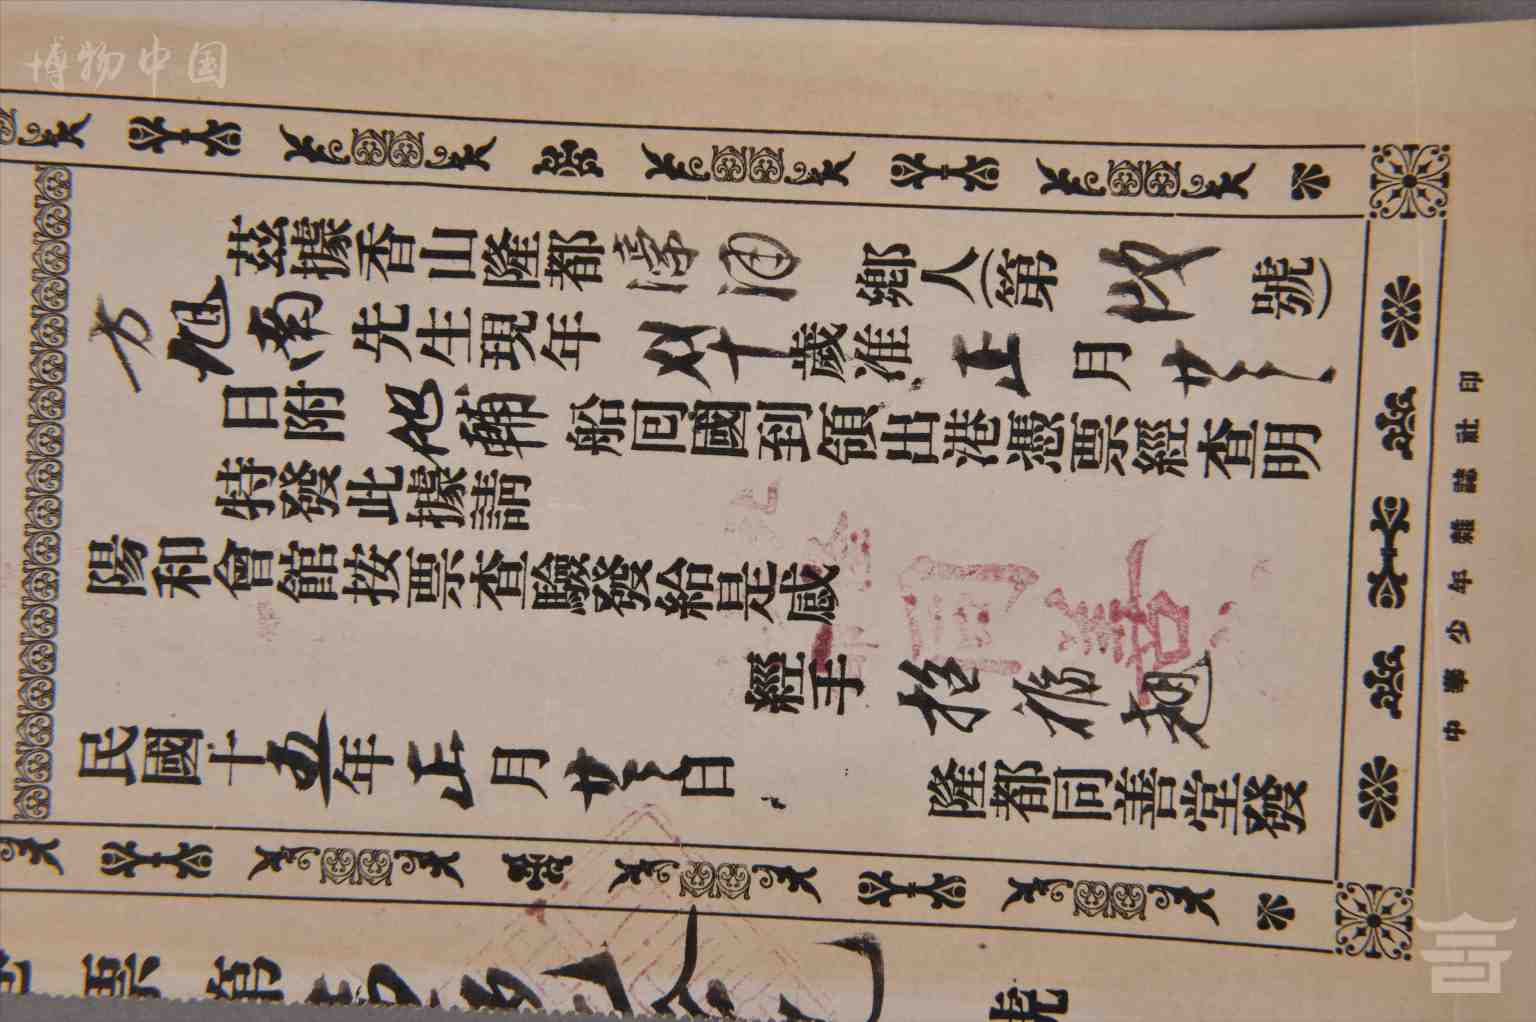 博物中国
茲據香山隆都 鄉人（第 號）
方旭南先生現年 十歲准正月廿三
日附 船回國到領出港憑票經查明
特發此據請
陽和會館按票查驗發給是感
經手
民國十五年正月廿三日
隆都同善堂發
中華少年雜誌社印
票第
號